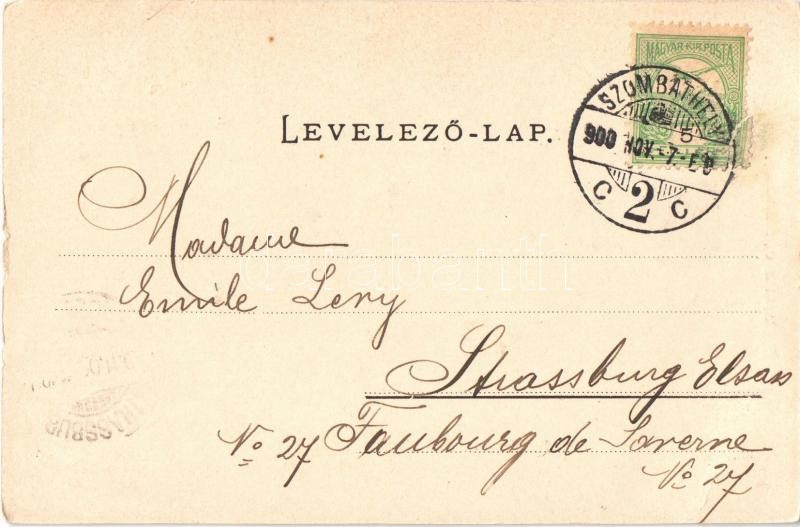 MAGYAR KIR. POSTA
SZOMBATHELY
900 NOV.-7.-E 6
C 2 C
5
LEVELEZŐ-LAP.
Madame
Emile Levy
Strassburg Elsass
No 27 Faubourg de Saverne
No 27
darabanth